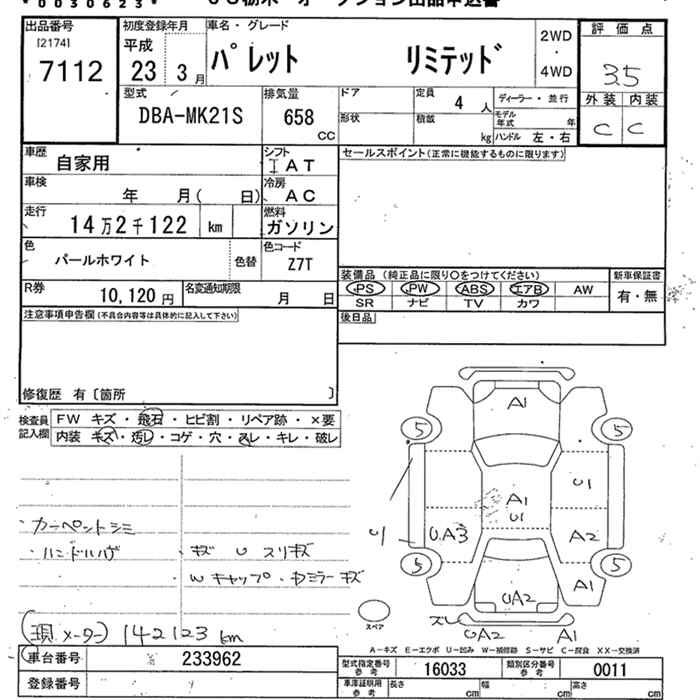 *0030623*
出品番号
[2174]
7112
初度登録年月
平成
23 3月
車名・グレード
パレット リミテッド
2WD
・
4WD
評価点
3.5
外装 内装
C C
型式
DBA-MK21S
排気量
658
CC
ドア
形状
定員
4人
積載
kg
ディーラー・並行
モデル年式 年
ハンドル 左・右
車歴
自家用
シフト
I AT
セールスポイント(正常に機能するものに限ります)
車検
年 月( 日)
冷房
AC
走行
14万2千122 km
燃料
ガソリン
色
パールホワイト
色替
色コード
Z7T
R券
10,120円
名変通知期限
月 日
装備品(純正品に限り○をつけてください)
PS PW ABS エアB AW
SR ナビ TV カワ
新車保証書
有・無
注意事項申告欄(不具合内容等は具体的に記入して下さい)
後日品
修復歴 有〔箇所 〕
検査員
記入欄
FW キズ・飛石・ヒビ割・リペア跡・×要
内装 キズ・汚レ・コゲ・穴・スレ・キレ・破レ
・カーペントシミ
・ハンドルハゲ
・キズ U スリキズ
Wキャップ・ミラーキズ
(現メーター) 142123km
A1
5 5
A1
U1
U1
UA3
A2
5 5
A1
UA2
スペア
スレ
UA2 A1
A-キズ E-エクボ U-凹み W-補修跡 S-サビ C-腐食 XX-交換済
車台番号
233962
登録番号
型式指定番号
参考
16033
類別区分番号
参考
0011
車庫証明用
参考
長さ cm 幅 cm 高さ cm